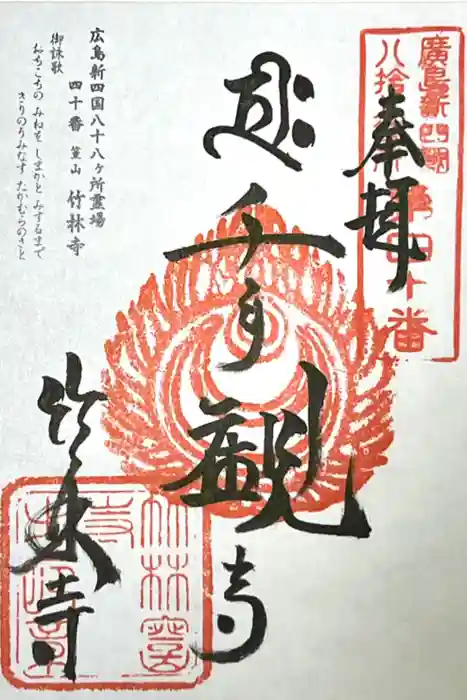 奉拝
廣島新四國
八拾八ヶ所第四十番
千手観音
竹林寺
広島新四国八十八ヶ所霊場
四十番 篁山 竹林寺
御詠歌
おちこちの みねをしまかと みするまで
きりのうみなす たかむらのさと